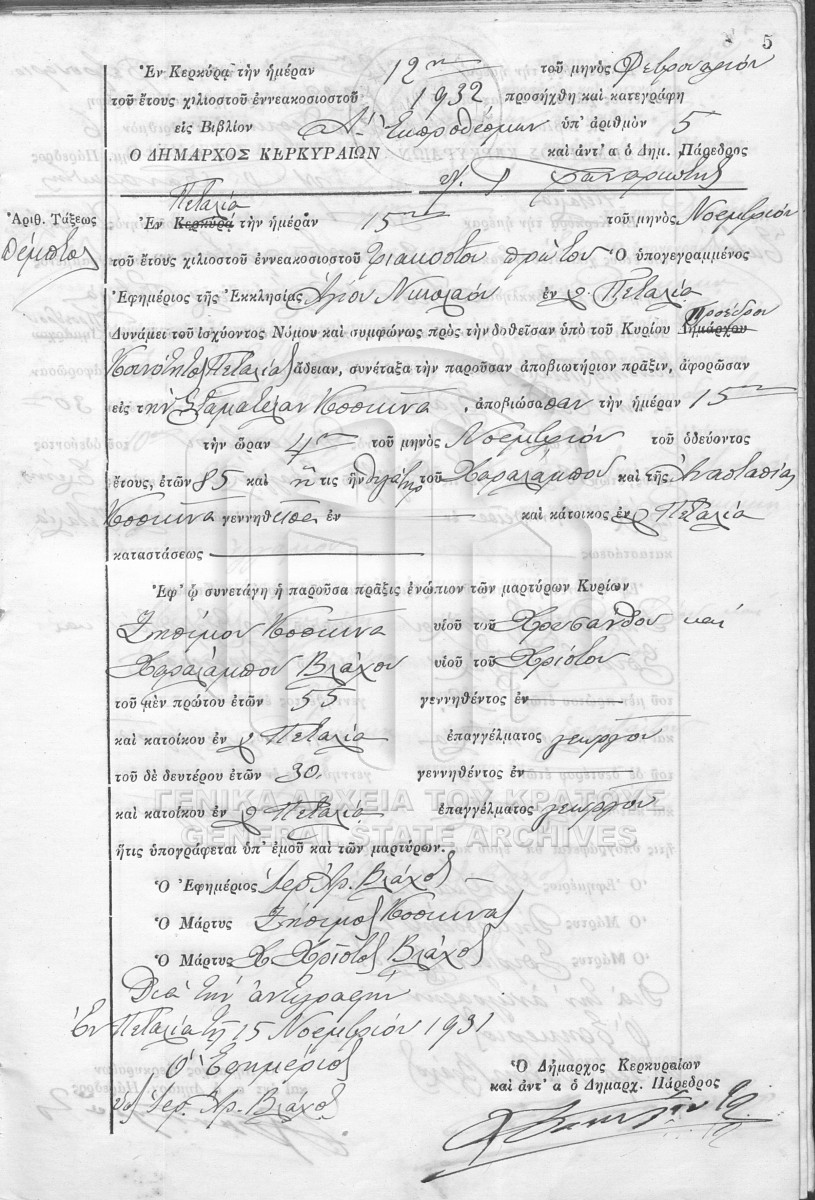 5
Ἐν Κερκύρᾳ τὴν ἡμέραν 12ην τοῦ μηνὸς Φεβρουαρίου
τοῦ ἔτους χιλιοστοῦ ἐννεακοσιοστοῦ 1932 προσήχθη καὶ κατεγράφη
εἰς Βιβλίον Α. Ἐκπροθέσμων ὑπ' ἀριθμὸν 5
Ο ΔΗΜΑΡΧΟΣ ΚΕΡΚΥΡΑΙΩΝ καὶ ἀντ' α ὁ Δημ. Πάρεδρος
Πεταλία
Ἀριθ. Τάξεως Ἐν Κερκύρᾳ τὴν ἡμέραν 15ην τοῦ μηνὸς Νοεμβρίου
Πέμπτος
τοῦ ἔτους χιλιοστοῦ ἐννεακοσιοστοῦ τριακοστοῦ πρώτου Ὁ ὑπογεγραμμένος
Ἐφημέριος τῆς Ἐκκλησίας Ἁγίου Νικολάου ἐν Πεταλία
Προέδρου
Δυνάμει τοῦ ἰσχύοντος Νόμου καὶ συμφώνως πρὸς τὴν δοθεῖσαν ὑπὸ τοῦ Κυρίου Δημάρχου
Κοινότητος Πεταλίας ἄδειαν, συνέταξα τὴν παροῦσαν ἀποβιωτήριον πρᾶξιν, ἀφορῶσαν
εἰς τὴν Σταματέλαν Κοσκινᾶ, ἀποβιώσασαν τὴν ἡμέραν 15ην
τὴν ὥραν 4ην τοῦ μηνὸς Νοεμβρίου τοῦ ὁδεύοντος
ἔτους, ἐτῶν 85 καὶ ἥ τις ἦν θυγάτηρ τοῦ Χαραλάμπου καὶ τῆς Ἀναστασίας
Κοσκινᾶ γεννηθεῖσα ἐν καὶ κάτοικος ἐν Πεταλία
καταστάσεως
Ἐφ' ᾧ συνετάγη ἡ παροῦσα πρᾶξις ἐνώπιον τῶν μαρτύρων Κυρίων
Ζησίμου Κοσκινᾶ υἱοῦ τοῦ Χρυσάνθου καὶ
Χαραλάμπου Βλάχου υἱοῦ τοῦ Χρίστου
τοῦ μὲν πρώτου ἐτῶν 55 γεννηθέντος ἐν
καὶ κατοίκου ἐν Πεταλία ἐπαγγέλματος γεωργοῦ
τοῦ δὲ δευτέρου ἐτῶν 30 γεννηθέντος ἐν
καὶ κατοίκου ἐν Πεταλία ἐπαγγέλματος γεωργοῦ
ΓΕΝΙΚΑ ΑΡΧΕΙΑ ΤΟΥ ΚΡΑΤΟΥΣ
GENERAL STATE ARCHIVES
ἥτις ὑπογράφεται ὑπ' ἐμοῦ καὶ τῶν μαρτύρων.
Ὁ Ἐφημέριος Ἱερ. Χρ. Βλάχος
Ὁ Μάρτυς Ζήσιμος Κοσκινᾶς
Ὁ Μάρτυς Χ Χρῖστος Βλάχος
Διὰ τὴν ἀντιγραφήν
Ἐν Πεταλία τῇ 15 Νοεμβρίου 1931
Ὁ Ἐφημέριος
Ἱερ. Χρ. Βλάχος
Ὁ Δήμαρχος Κερκυραίων
καὶ ἀντ' α ὁ Δημαρχ. Πάρεδρος